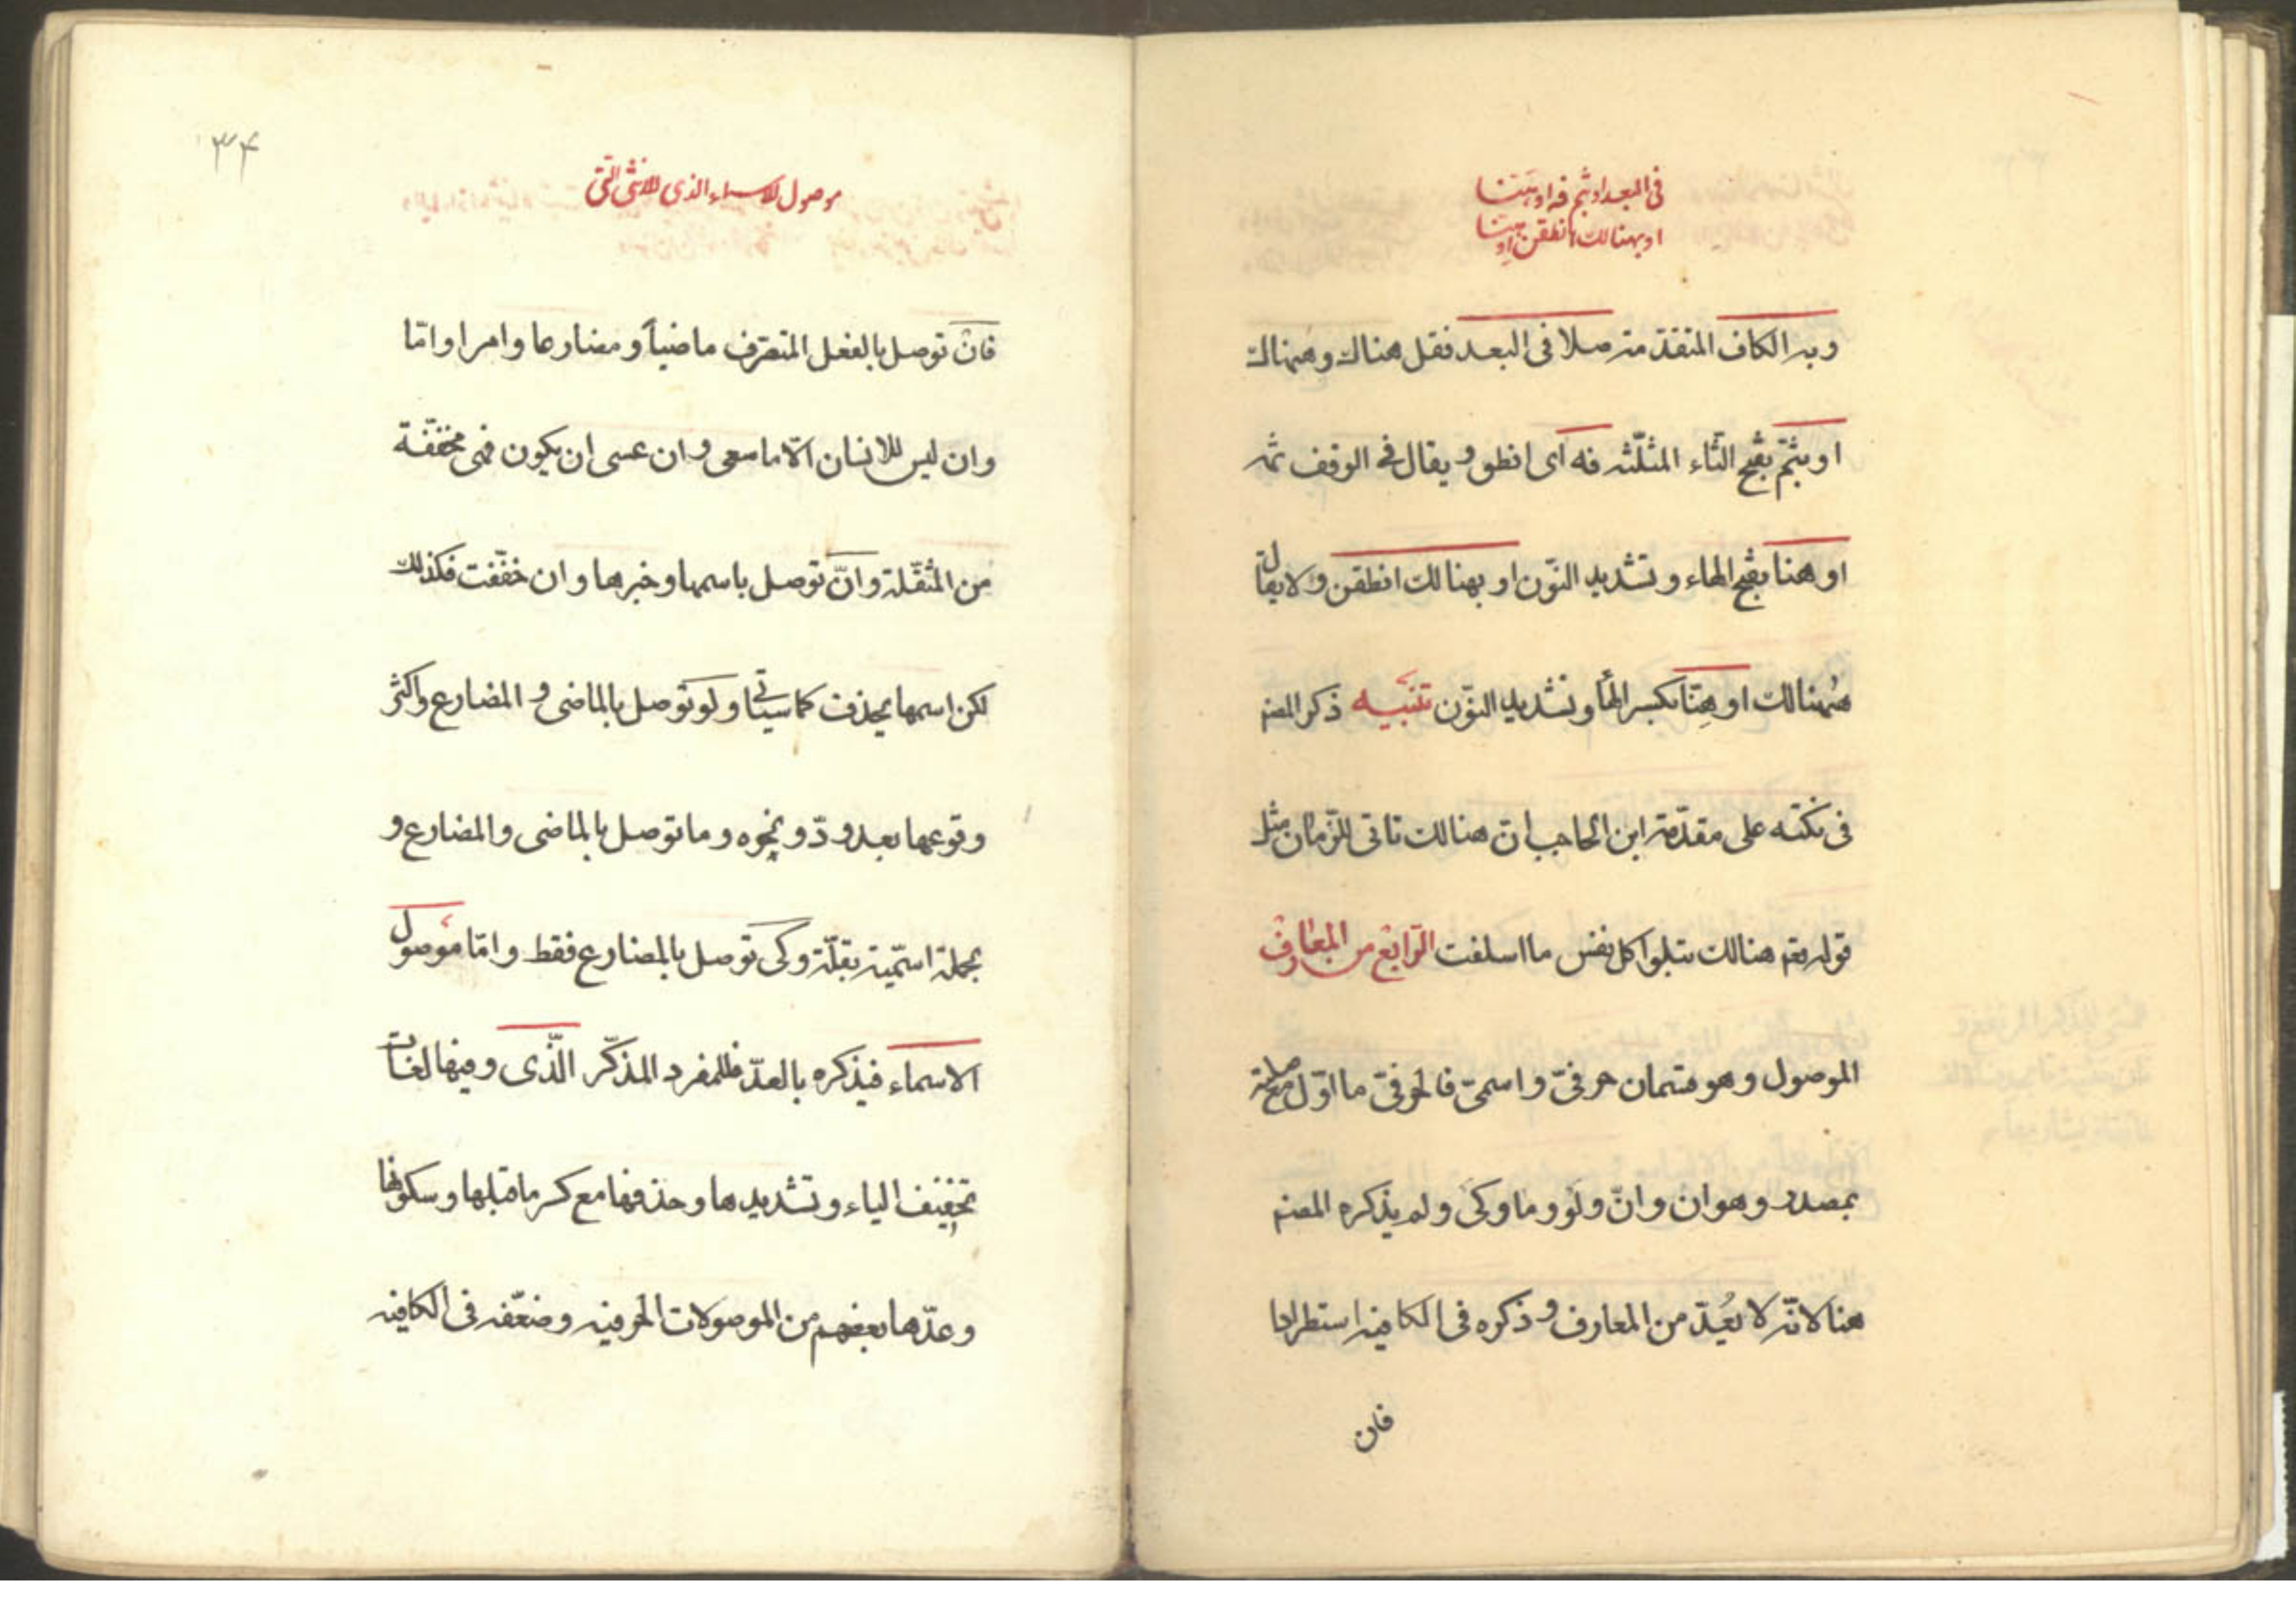 فى البعد او بثم فه او هنا
او بهنالك انطقن او هنا
وبه الكاف المتقدمة صلا فى البعد فقل هناك وههناك
او بثمّ بفتح الثّاء المثلّثه فه اى انطق ويقال فى الوقف ثمه
او هنا بفتح الهاء وتشديد النّون او بهنالك انطقن ولا يقال
ههنالك او هِنّا بكسر الهاء وتشديد النّون تنبيه ذكر المصنه
فى نكته على مقدّمة ابن الحاجب انّ هنالك تاتى للزّمان مثل
قوله تعه هنالك تبلوا كل نفس ما اسلفت الرّابع من المعارف
الموصول وهو قسمان حرفىّ واسمىّ فالحرفىّ ما اوّل مع صلته
بمصدر وهو ان وانّ ولو وما وكى ولم يذكره المصنه
هنا لانّه لا يُعدّ من المعارف وذكره فى الكافيه استطرادا
فان
٣۴
موصول الاسماء الذى الانثى الّتى
فان توصل بالفعل المتصرّف ماضياً ومضارعا وامرا وامّا
وان ليس للانسان الّا ما سعى وان عسى ان يكون فهى مخفّفة
من المثقّلة وانّ توصل باسمها وخبرها وان خفّفت فكذلك
لكن اسمها يحذف كما سياتى ولو توصل بالماضى والمضارع واكثر
وقوعها بعد ودّ ونحوه وما توصل بالماضى والمضارع و
بجملة اسمّية بقلّة وكى توصل بالمضارع فقط وامّا موصول
الاسماء فيذكره بالعدّ فللمفرد المذكّر الّذى وفيها لغات
تخفيف الياء وتشديدها وحذفها مع كسر ما قبلها وسكونها
وعدّها بعضهم من الموصولات الحرفيه وضعّفه فى الكافيه